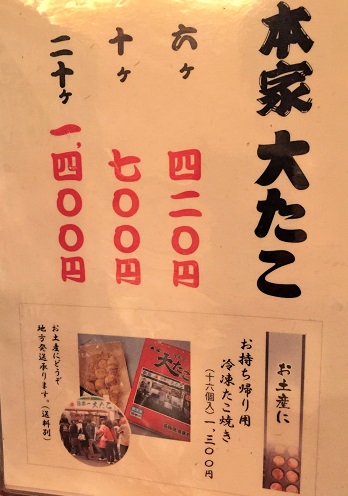 本家 大たこ
六ヶ 四二〇円
十ヶ 七〇〇円
二十ヶ 一、四〇〇円
お土産に
お持ち帰り用
冷凍たこ焼き
(十六個入)一、三〇〇円
大たこ
お土産にどうぞ
地方発送承ります。(送料別)